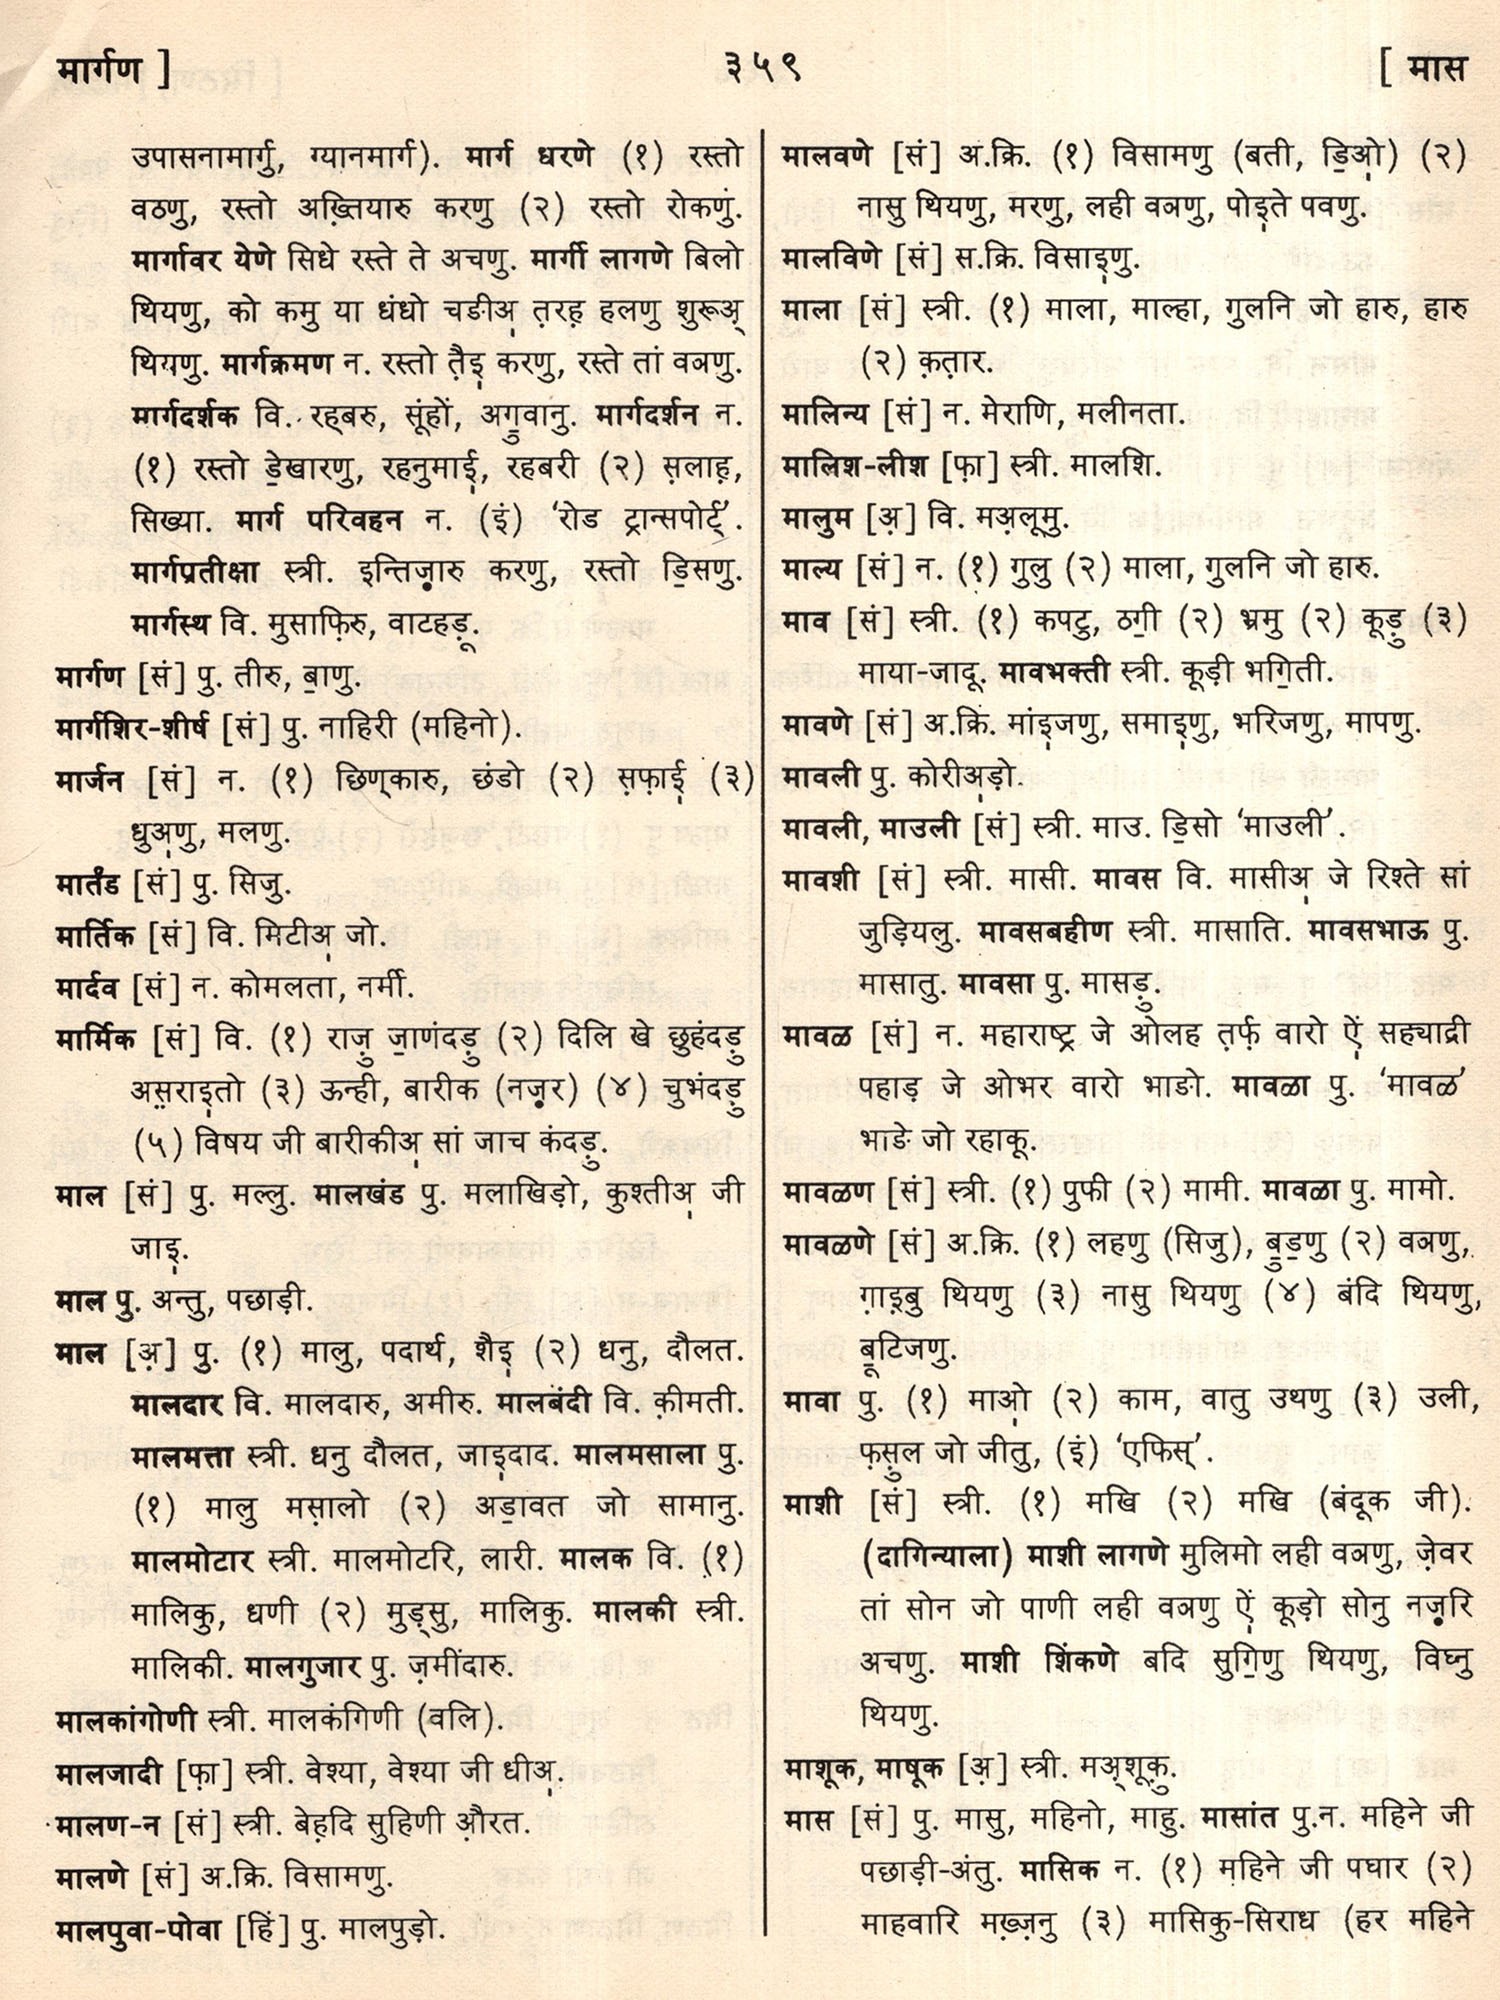 मार्गण ]
३५९
[ मास
उपासनामार्गु, ग्यानमार्ग). मार्ग धरणे (१) रस्तो
वठणु, रस्तो अख़्तियारु करणु (२) रस्तो रोकणुं.
मार्गावर येणे सिधे रस्ते ते अचणु. मार्गी लागणे बिलो
थियणु, को कमु या धंधो चङीअ॒ त़रह़ हलणु शुरूअ़्
थियणु. मार्गक्रमण न. रस्तो त़ैइ॒ करणु, रस्ते तां वञणु.
मार्गदर्शक वि. रह्बरु, सूंहों, अगु॒वानु. मार्गदर्शन न.
(१) रस्तो डे॒खारणु, रहनुमाई॒, रहबरी (२) स़लाह़,
सिख्या. मार्ग परिवहन न. (इं) ‘रोड ट्रान्सपोर्ट्’.
मार्गप्रतीक्षा स्त्री. इन्तिज़ारु करणु, रस्तो डि॒सणु.
मार्गस्थ वि. मुसाफ़िरु, वाटहड़ू.
मार्गण [सं] पु. तीरु, बा॒णु.
मार्गशिर-शीर्ष [सं] पु. नाहिरी (महिनो).
मार्जन [सं] न. (१) छिण्कारु, छंडो (२) स़फ़ाई॒ (३)
धुअ॒णु, मलणु.
मार्तंड [सं] पु. सिजु.
मार्तिक [सं] वि. मिटीअ॒ जो.
मार्दव [सं] न. कोमलता, नर्मी.
मार्मिक [सं] वि. (१) राज़ु जा॒णंदड़ु (२) दिलि खे छुहंदड़ु
अस़राइ॒तो (३) ऊन्ही, बारीक (नज़र) (४) चुभंदड़ु
(५) विषय जी बारीकीअ॒ सां जाच कंदड़ु.
माल [सं] पु. मल्लु. मालखंड पु. मलाखिड़ो, कुश्तीअ॒ जी
जाइ॒.
माल पु. अन्तु, पछाड़ी.
माल [अ़] पु. (१) मालु, पदार्थ, शैइ॒ (२) धनु, दौलत.
मालदार वि. मालदारु, अमीरु. मालबंदी वि. क़ीमती.
मालमत्ता स्त्री. धनु दौलत, जाइ॒दाद. मालमसाला पु.
(१) मालु मस़ालो (२) अडा॒वत जो सामानु.
मालमोटार स्त्री. मालमोटरि, लारी. मालक वि. (१)
मालिकु, धणी (२) मुड़्सु, मालिकु. मालकी स्त्री.
मालिकी. मालगुजार पु. ज़मींदारु.
मालकांगोणी स्त्री. मालकंगिणी (वलि).
मालजादी [फ़ा] स्त्री. वेश्या, वेश्या जी धीअ॒.
मालण-न [सं] स्त्री. बेह़दि सुहिणी औ़रत.
मालणे [सं] अ.क्रि. विसामणु.
मालपुवा-पोवा [हिं] पु. मालपुड़ो.
मालवणे [सं] अ.क्रि. (१) विसामणु (बती, डि॒ओ॒) (२)
नासु थियणु, मरणु, लही वञणु, पोइ॒ते पवणु.
मालविणे [सं] स.क्रि. विसाइ॒णु.
माला [सं] स्त्री. (१) माला, माल्हा, गुलनि जो हारु, हारु
(२) क़त़ार.
मालिन्य [सं] न. मेराणि, मलीनता.
मालिश-लीश [फ़ा] स्त्री. मालशि.
मालुम [अ़] वि. मअ़लूमु.
माल्य [सं] न. (१) गुलु (२) माला, गुलनि जो हारु.
माव [सं] स्त्री. (१) कपटु, ठगी॒ (२) भ्रमु (२) कूड़ु (३)
माया-जादू. मावभक्ती स्त्री. कूड़ी भगि॒ती.
मावणे [सं] अ.क्रि. मांइ॒जणु, समाइ॒णु, भरिजणु, मापणु.
मावली पु. कोरीअ॒ड़ो.
मावली, माउली [सं] स्त्री. माउ. डि॒सो ‘माउली’.
मावशी [सं] स्त्री. मासी. मावस वि. मासीअ॒ जे रिश्ते सां
जुड़ियलु. मावसबहीण स्त्री. मासाति. मावसभाऊ पु.
मासातु. मावसा पु. मासड़ु.
मावळ [सं] न. महाराष्ट्र जे ओलह त़र्फ़ वारो ऐं॒ सह्याद्री
पहाड़ जे ओभर वारो भाङो. मावळा पु. ‘मावळ’
भाङे जो रहाकू.
मावळण [सं] स्त्री. (१) पुफी (२) मामी. मावळा पु. मामो.
मावळणे [सं] अ.क्रि. (१) लहणु (सिजु), बु॒ड॒णु (२) वञणु,
ग़ाइ॒बु थियणु (३) नासु थियणु (४) बंदि थियणु,
बू॒टिजणु.
मावा पु. (१) माओ॒ (२) काम, वातु उथणु (३) उली,
फ़स़ुल जो जीतु, (इं) ‘एफिस्’.
माशी [सं] स्त्री. (१) मखि (२) मखि (बंदूक जी).
(दागिन्याला) माशी लागणे मुलिमो लही वञणु, ज़ेवर
तां सोन जो पाणी लही वञणु ऐं॒ कूड़ो सोनु नज़रि
अचणु. माशी शिंकणे बदि सुगि॒णु थियणु, विघ्नु
थियणु.
माशूक, माषूक [अ़] स्त्री. मअ़्शूक़ु.
मास [सं] पु. मासु, महिनो, माहु. मासांत पु.न. महिने जी
पछाड़ी-अंतु. मासिक न. (१) महिने जी पघार (२)
माहवारि मख़्ज़नु (३) मासिकु-सिराध (हर महिने